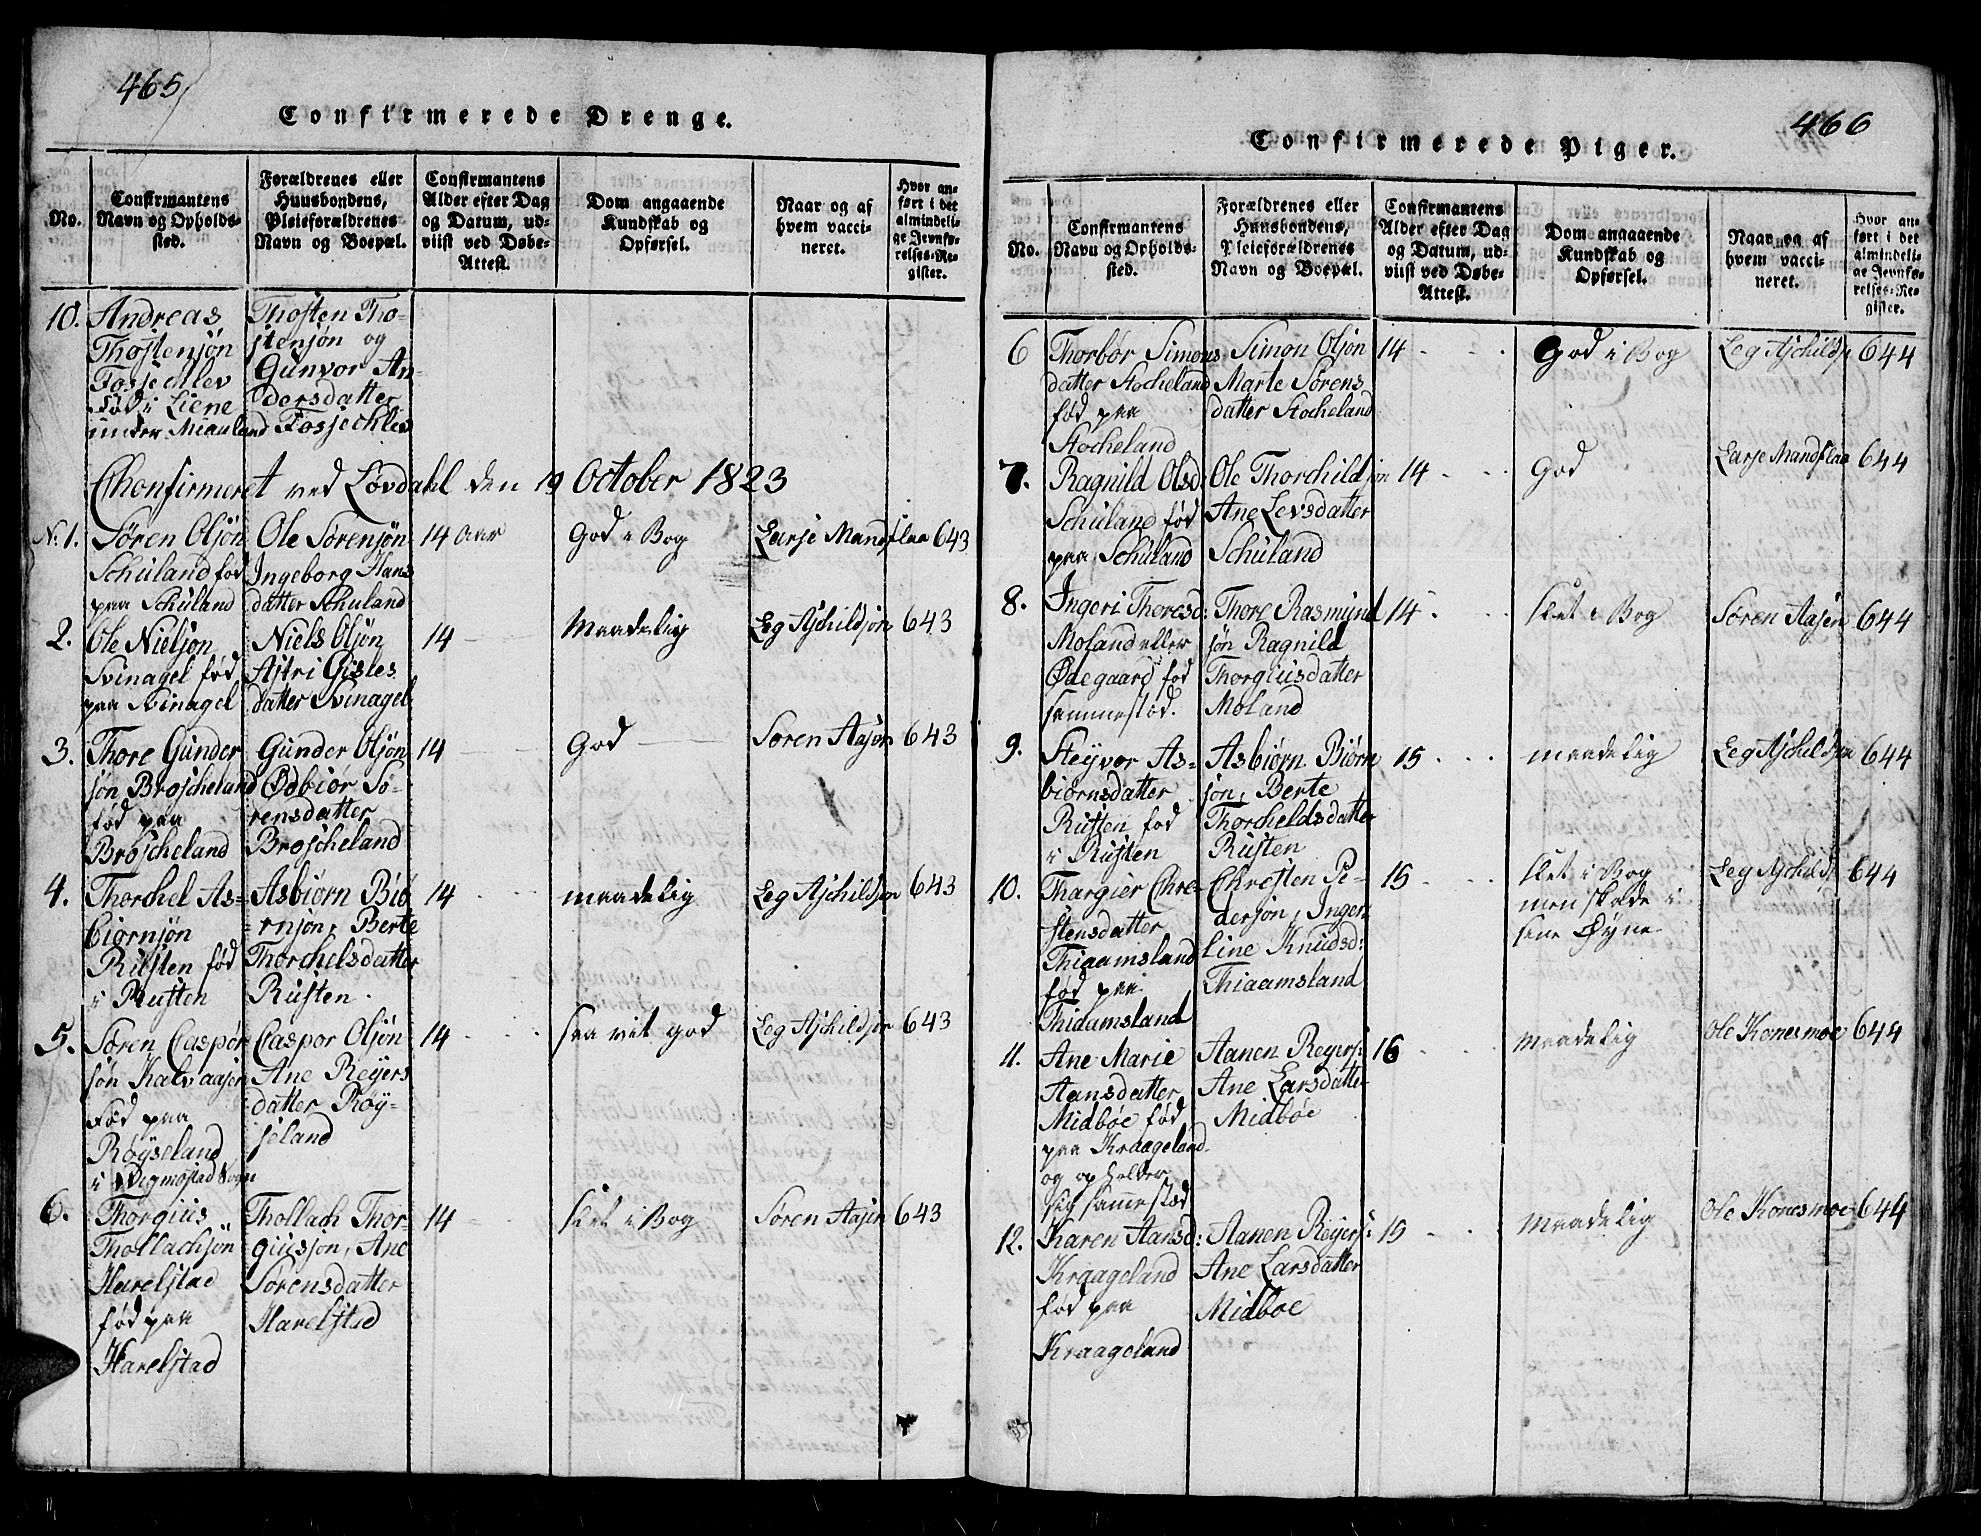 465
Confirmerede Drenge.
No.
Confirmantens
Navn og Opholds-
sted.
Forældrenes eller
Huusbondens,
Pleieforældrenes
Navn og Boepæl.
Confirmantens
Alder efter Dag
og Datum, ud-
viist ved Døbe-
Attest.
Dom angaaende
Kundskab og
Opførsel.
Naar og af
hvem vacci-
neret.
Hvor an-
ført i det
almindeli-
ge Jevnfø-
relses-Re-
gister.
10. Andreas
Thostensøn
Fosjechlev
død i Liene
under Miauland
Thosten Tho-
stensøn og
Gunvor An-
dersdatter
Fosjechlev
Chonfirmeret ved Løvdahl den 19 October 1823
N. 1. Søren Olsøn
Schuland fød
paa Schuland
Ole Sørensøn
Ingeborg Hans
datter Schuland
14 aar
God i Bog
Larse Mandflaa
643
2. Ole Nielsøn
Svinagel fød
paa Svinagel
Niels Olsøn
Astri Gisles
datter Svinagel
14
Maadelig
Leg Aschildsøn
643
3. Thore Gunder
søn Broscheland
fød paa
Broscheland
Gunder Olsøn
Ødbiør Sø-
rensdatter
Broscheland
14
God
Søren Aasen
643
4. Thorchel As-
biørnsøn
Rusten fød
i Rusten
Asbiørn Biø
-rnsøn, Berte
Thorchelsdatter
Rusten.
14
maadelig
Leg Aschildsøn
643
5. Søren Caspor
søn Kalvaasen
Fød paa
Røyseland
i Vigmostad Sogn
Caspor Olsøn
Ane Reyers
datter Røy-
seland
14
saa vit god
Leg Aschildsøn
643
6. Thorgius
Thollachsøn
Harelstad
fød paa
Harelstad
Thollach Thor-
giussøn, Ane
Sørensdatter
Harelstad
14
slet i Bog
Søren Aasen
643
466
Confirmerede Piger.
No.
Confirmantens
Navn og Opholds-
sted.
Forældrenes eller
Huusbondens,
Pleieforældrenes
Navn og Boepæl.
Confirmantens
Alder efter Dag
og Datum, ud-
viist ved Døbe-
Attest.
Dom angaaende
Kundskab og
Opførsel.
Naar og af
hvem vacci-
neret.
Hvor an-
ført i det
almindeli-
ge Jevnfø-
relses-Re-
gister.
6 Thorbør Simons
datter Stocheland
fød paa
Stocheland
Simon Olsøn
Marte Sørens
datter Stocheland
14
God i Bog
Leg Aschilds
644
7. Ragnild Olsd:
Schuland fød
paa Schuland
Ole Thorchildsøn
Ane Levsdatter
Schuland
14
God
Larse Mandflaa
644
8. Ingeri Thoresd:
Moland eller
Ødegaard fød
sammestæd.
Thore Rasmund
søn Ragnild
Thorgiusdatter
Moland
14
slet i Bog
Søren Aasen
644
9. Steyvor As-
biørnsdatter
Rusten fød
i Rusten
Asbiørn Biørn
søn, Berte
Thorcheldsdatter
Rusten
15
maadelig
Leg Aschildsøn
644
10. Thargier Chre-
stensdatter
Thiaamsland
fød paa
Thiaamsland
Chresten Pe-
dersøn, Inger
Line Knudsd:
Thiaamsland
15
slet i Bog
men skade i
sine Øyne
Leg Aschilds
644
11. Ane Marie
Aansdatter
Midbøe fød
paa Kraageland
og opholder
sig sammestæd
Aanen Reyers:
Ane Larsdatter
Midbøe
16
maadelig
Ole Konesmoe
644
12. Karen Aansd:
Kraageland
fød paa
Kraageland
Aanen Reyers:
Ane Larsdatter
Midbøe
15
maadelig
Ole Konesmoe
644